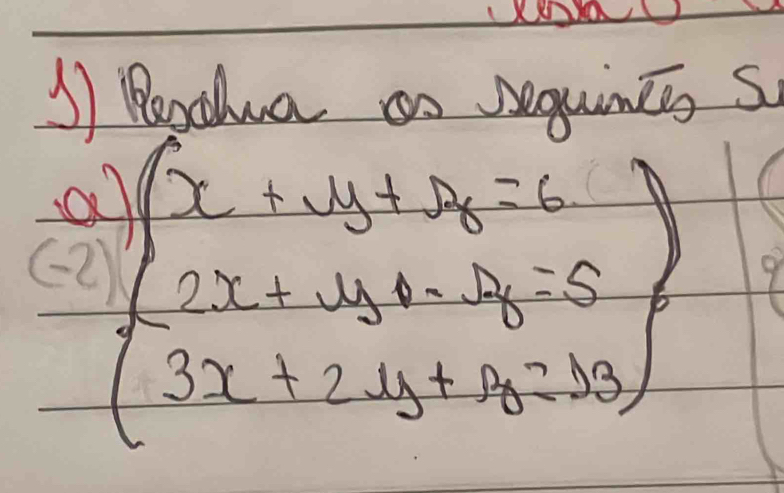 1) Resolva os seguintes
a) x + y + z = 6
(-2) 2x + y - z = 5
3x + 2y + z = 13